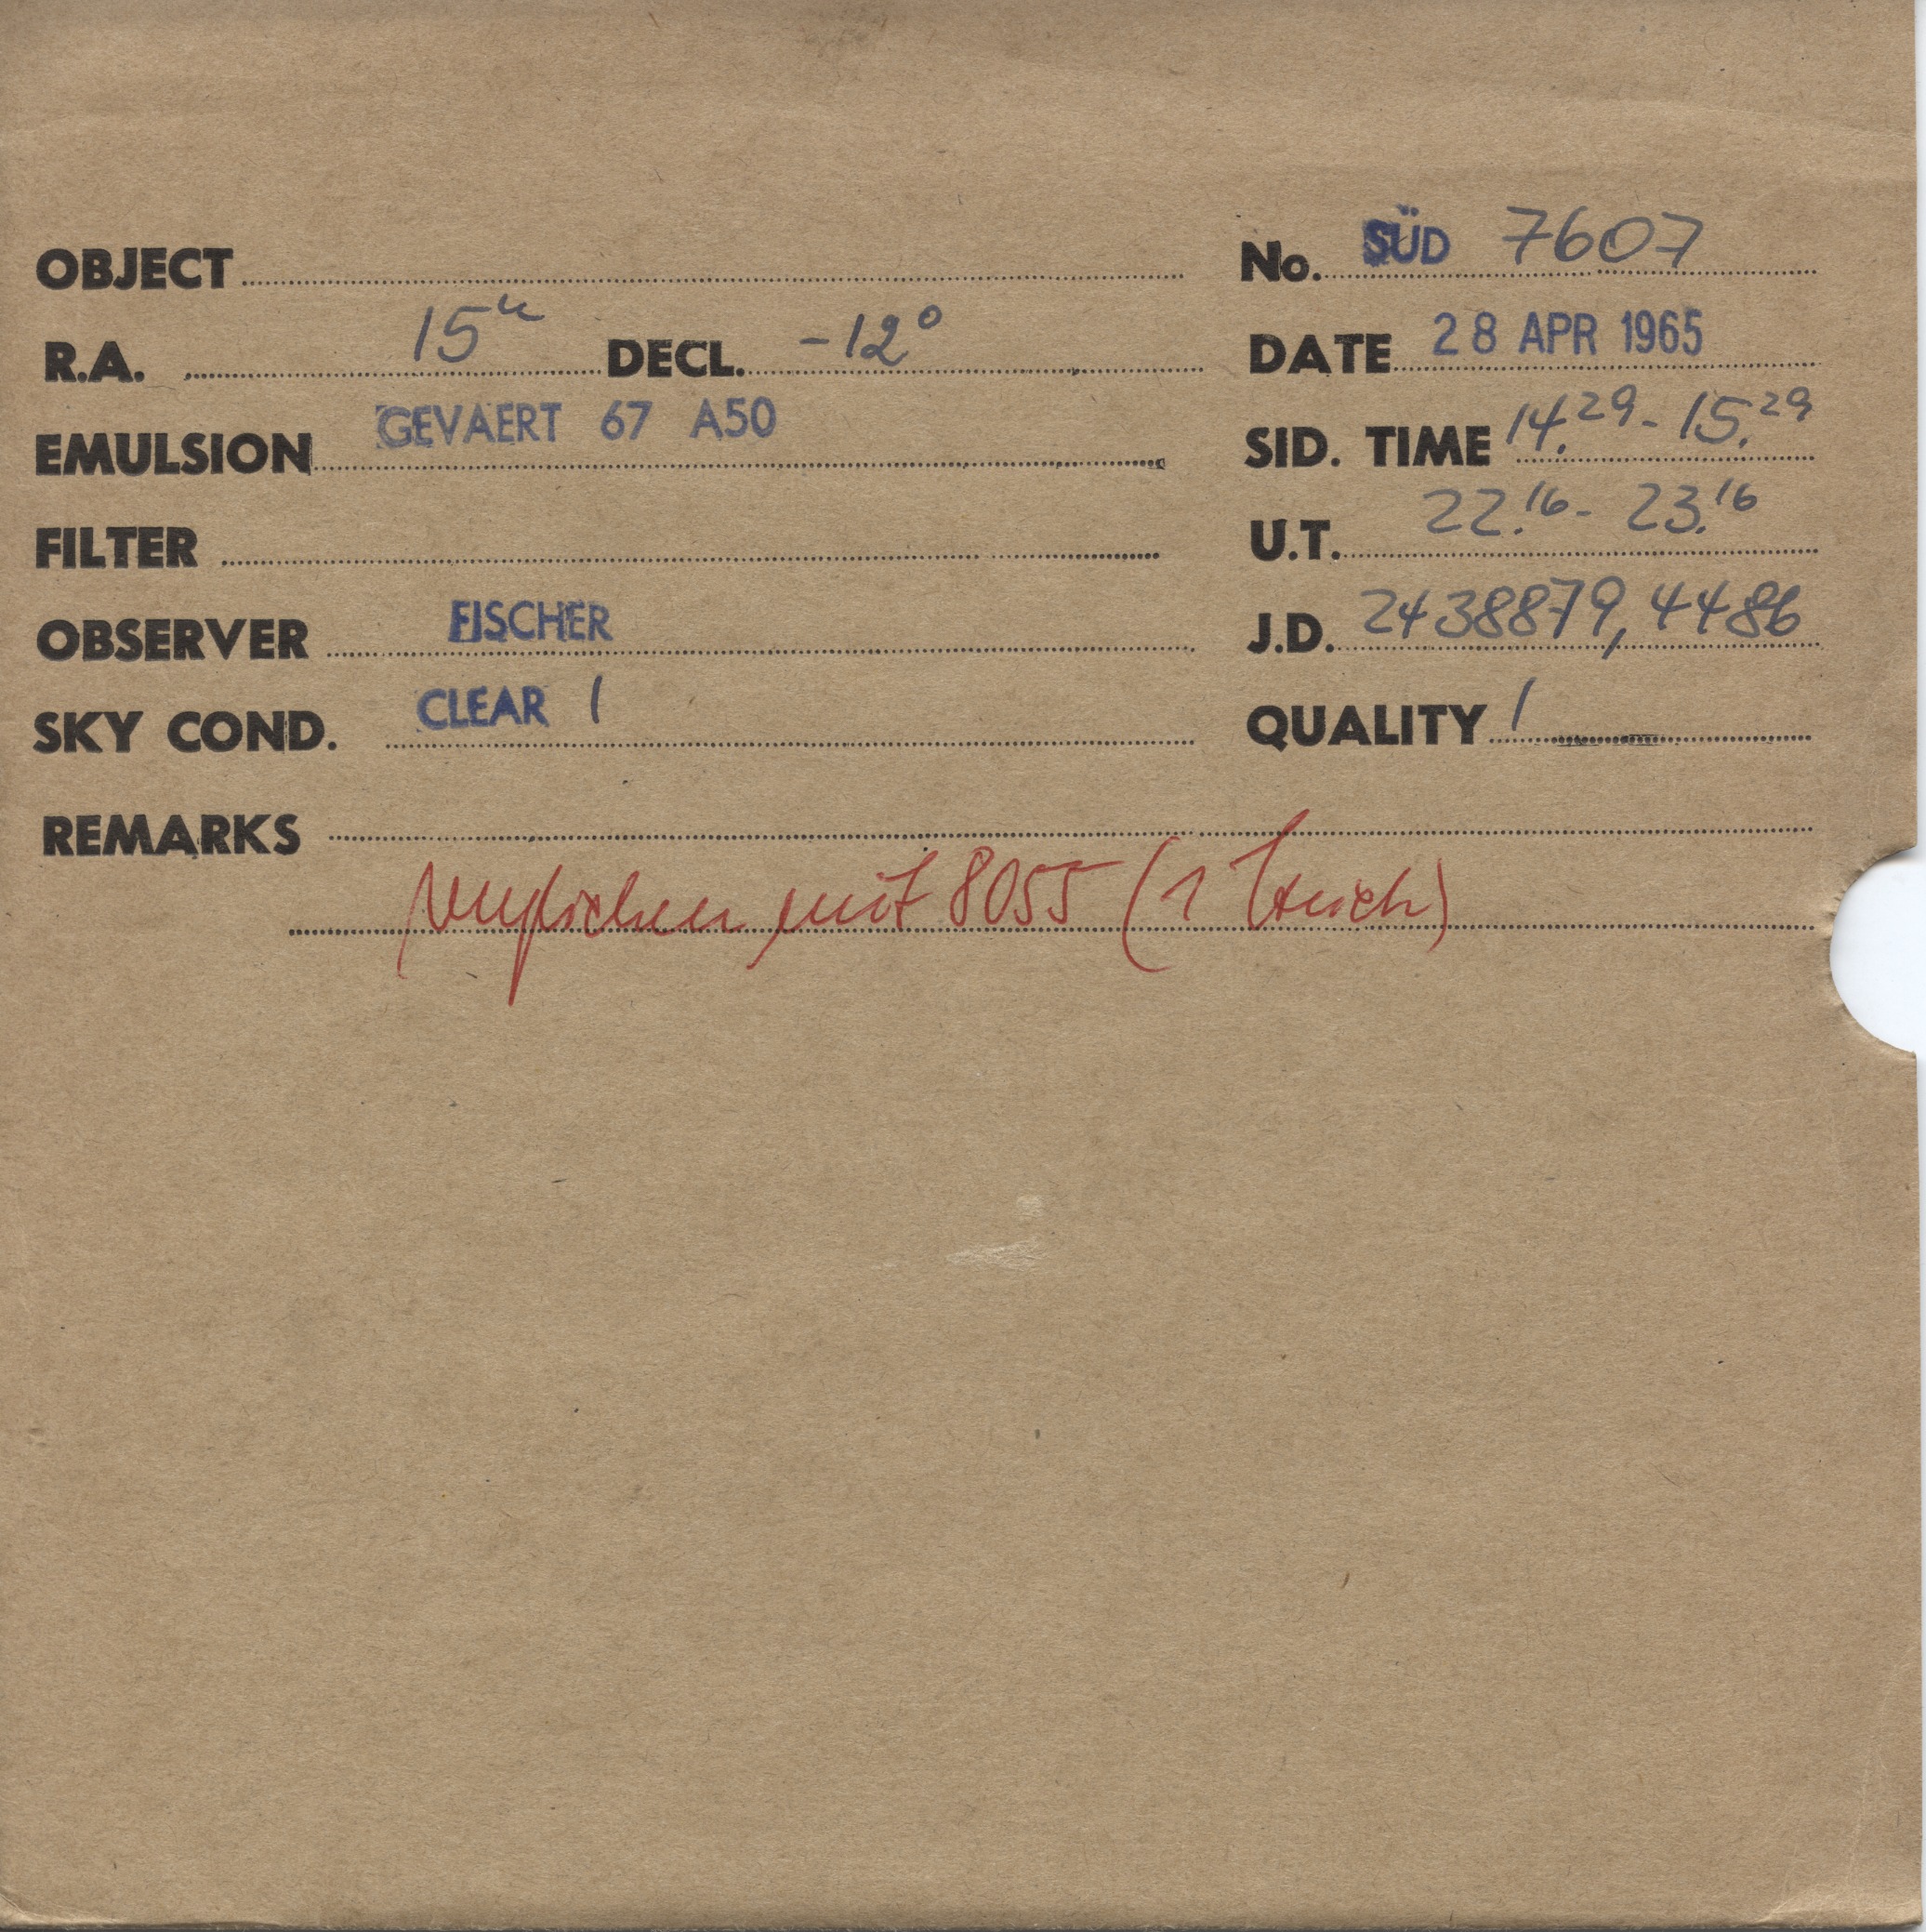 OBJECT No. SÜD 7607
R.A. 15h DECL. -12°
DATE 28 APR 1965
EMULSION GEVAERT 67 A50
SID. TIME 14.29 - 15.29
FILTER
U.T. 22.16 - 23.16
OBSERVER FISCHER
J.D. 2438879,4486
SKY COND. CLEAR 1
QUALITY 1
REMARKS
verglichen mit 8055 (1 Strich)